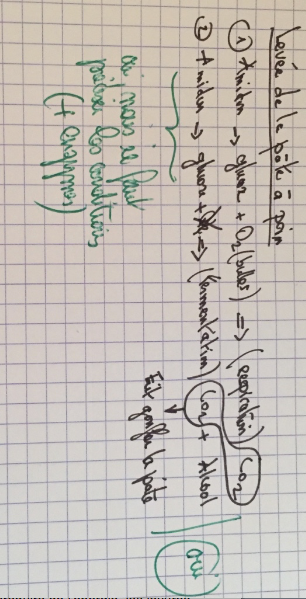 Levée de la pâte à pain
① Amidon → glucose + O2 (bulles) => (respiration) CO2
② Amidon → glucose + => (fermentation) CO2 + Alcool
Fait gonfler la pâte
oui
oui mais il faut
préciser les conditions
(+ enzymes)